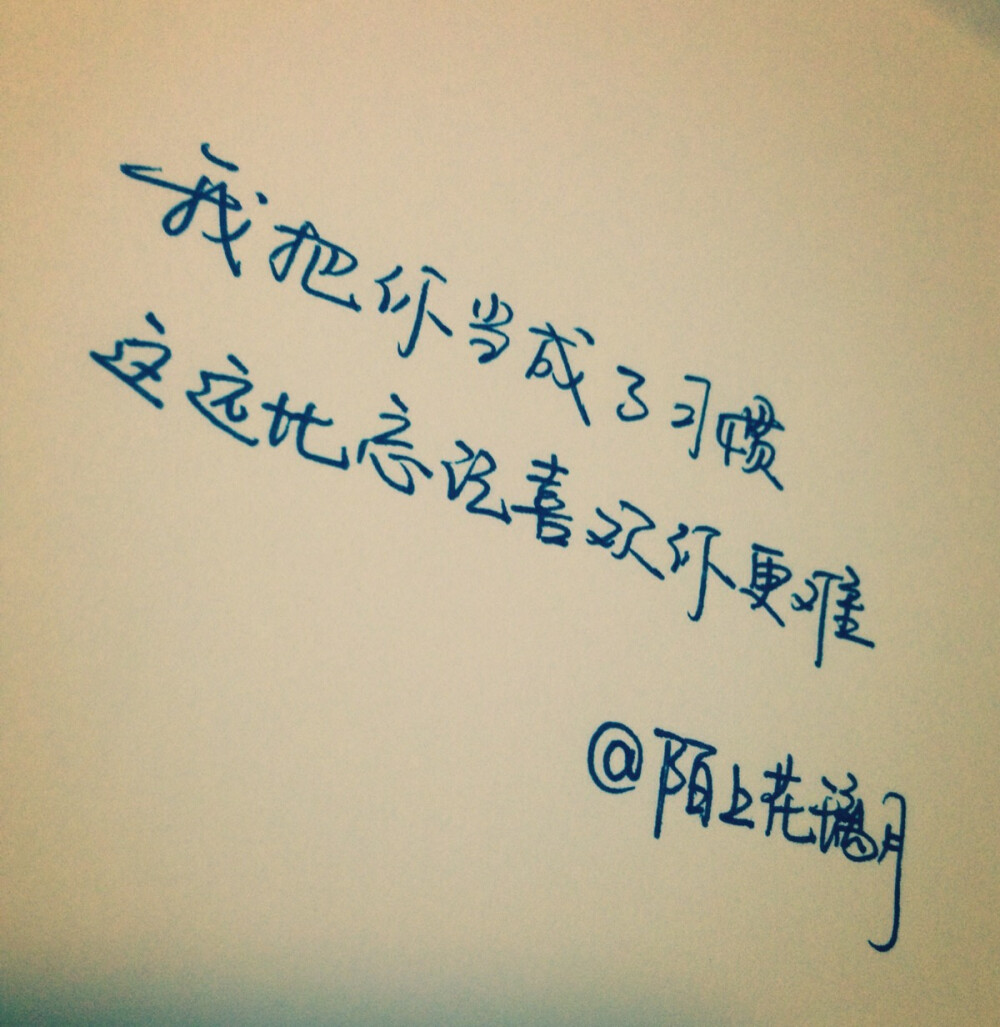 我把你当成了习惯
这远比忘说喜欢你更难
@陌上花璃月